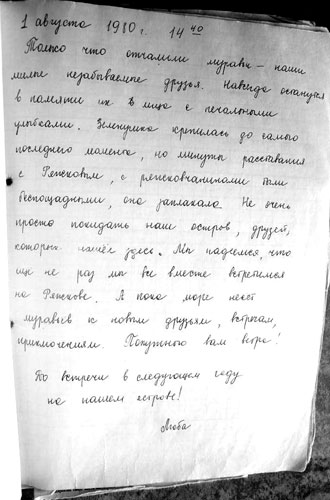 1 августа 1980 г. 14 40
Только что отчалили муравьи – наши
милые незабываемые друзья. Навсегда останутся
в памяти их лица с печальными
улыбками. крепилась до самого
последнего момента, но минуты расставания
с Ряжковым, с ряжковчанами были
беспощадными, она заплакала. Не очень
просто покидать наш остров, друзей,
которых здесь. Мы надеемся, что
еще не раз мы все вместе встретимся
на Ряжкове. А пока море несет
муравьев к новым друзьям, встречам,
приключениям. Попутного вам ветра!
До встречи в следующем году
на нашем острове!
Люба